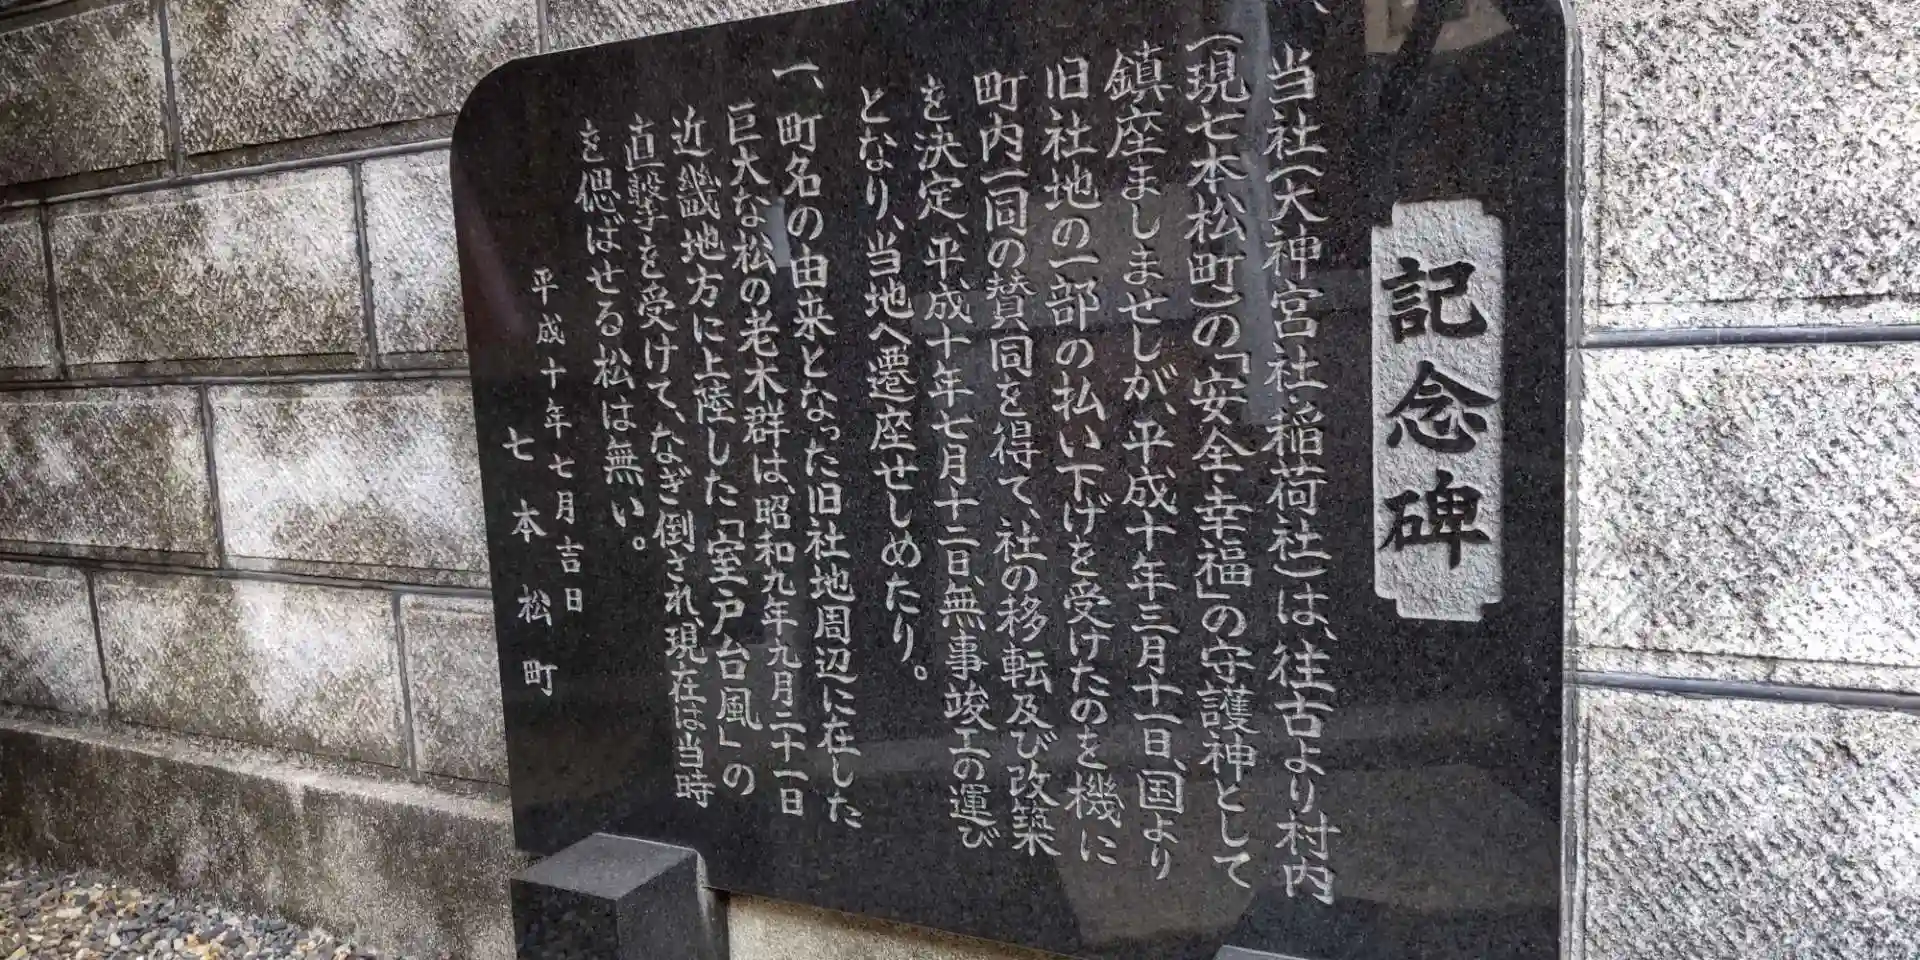 記念碑
、当社(大神宮社・稲荷社)は、往古より村内
(現七本松町)の「安全・幸福」の守護神として
鎮座ましませしが、平成十年三月十一日、国より
旧社地の一部の払い下げを受けたのを機に
町内一同の賛同を得て、社の移転及び改築
を決定、平成十年七月十二日、無事竣工の運び
となり、当地へ遷座せしめたり。
一、町名の由来となった旧社地周辺に在した
巨大な松の老木群は、昭和九年九月二十一日
近畿地方に上陸した「室戸台風」の
直撃を受けて、なぎ倒され、現在は当時
を偲ばせる松は無い。
平成十年七月吉日
七本松町